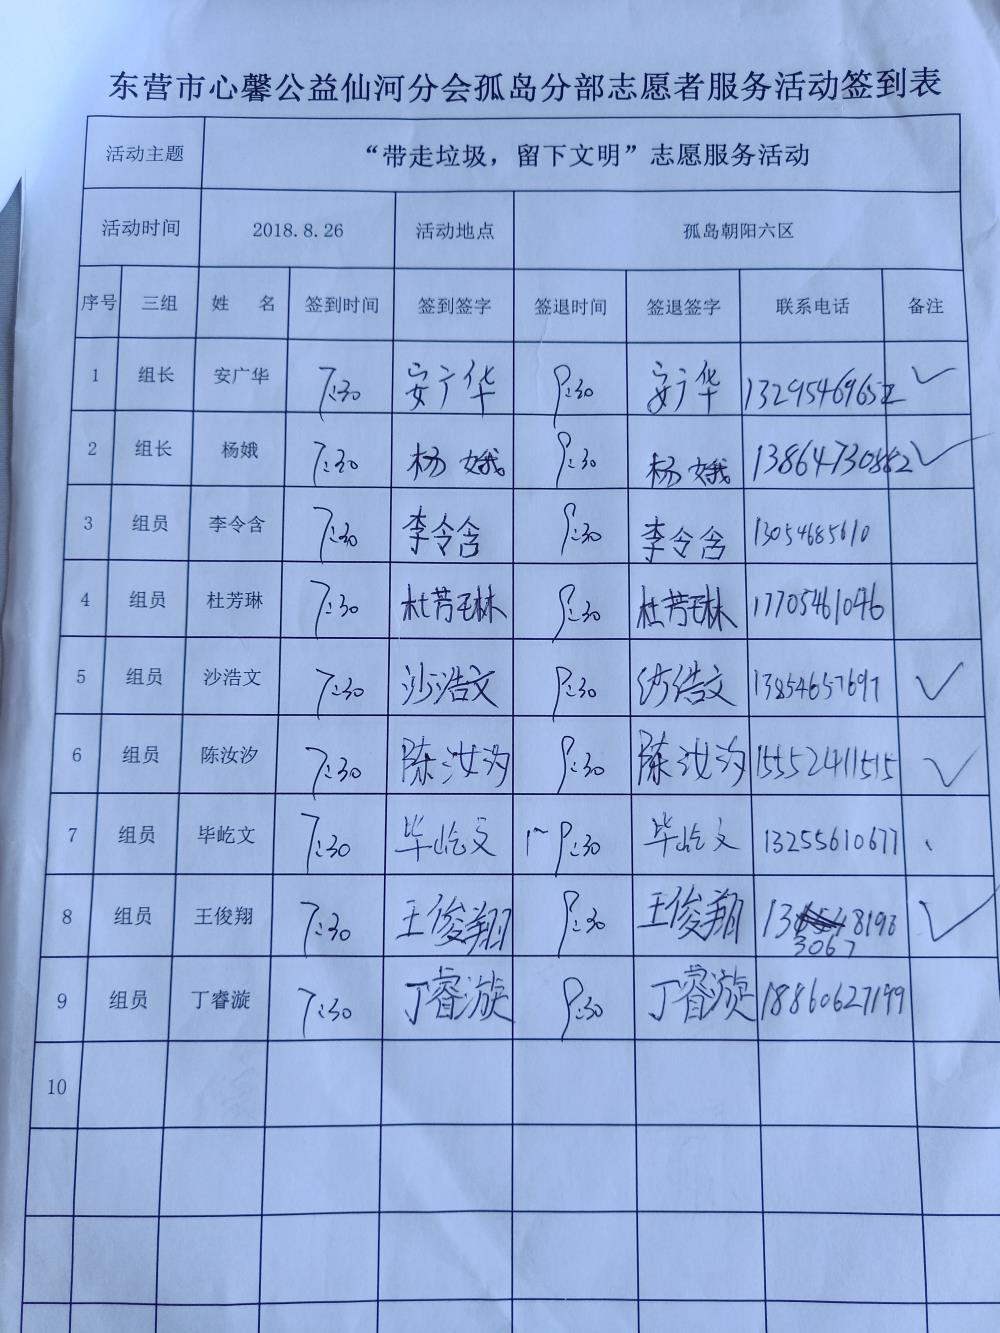 东营市心馨公益仙河分会孤岛分部志愿者服务活动签到表
活动主题 “带走垃圾，留下文明”志愿服务活动
活动时间 2018.8.26 活动地点 孤岛朝阳六区
序号 三组 姓 名 签到时间 签到签字 签退时间 签退签字 联系电话 备注
1 组长 安广华 7:30 安广华 9:30 安广华 ✓
2 组长 杨娥 7:30 杨娥 9:30 杨娥 13864730882 ✓
3 组员 李令含 7:30 李令含 9:30 李令含 13054685610
4 组员 杜芳琳 7:30 杜芳琳 9:30 杜芳琳 17705461046
5 组员 沙浩文 7:30 沙浩文 9:30 沙浩文 13854657697 ✓
6 组员 陈汝汐 7:30 陈汝汐 9:30 陈汝汐 15552411515 ✓
7 组员 毕屹文 7:30 毕屹文 9:30 毕屹文 13255610677
8 组员 王俊翔 7:30 王俊翔 9:30 王俊翔 ✓
9 组员 丁睿漩 7:30 丁睿漩 9:30 丁睿漩 18860627199
10